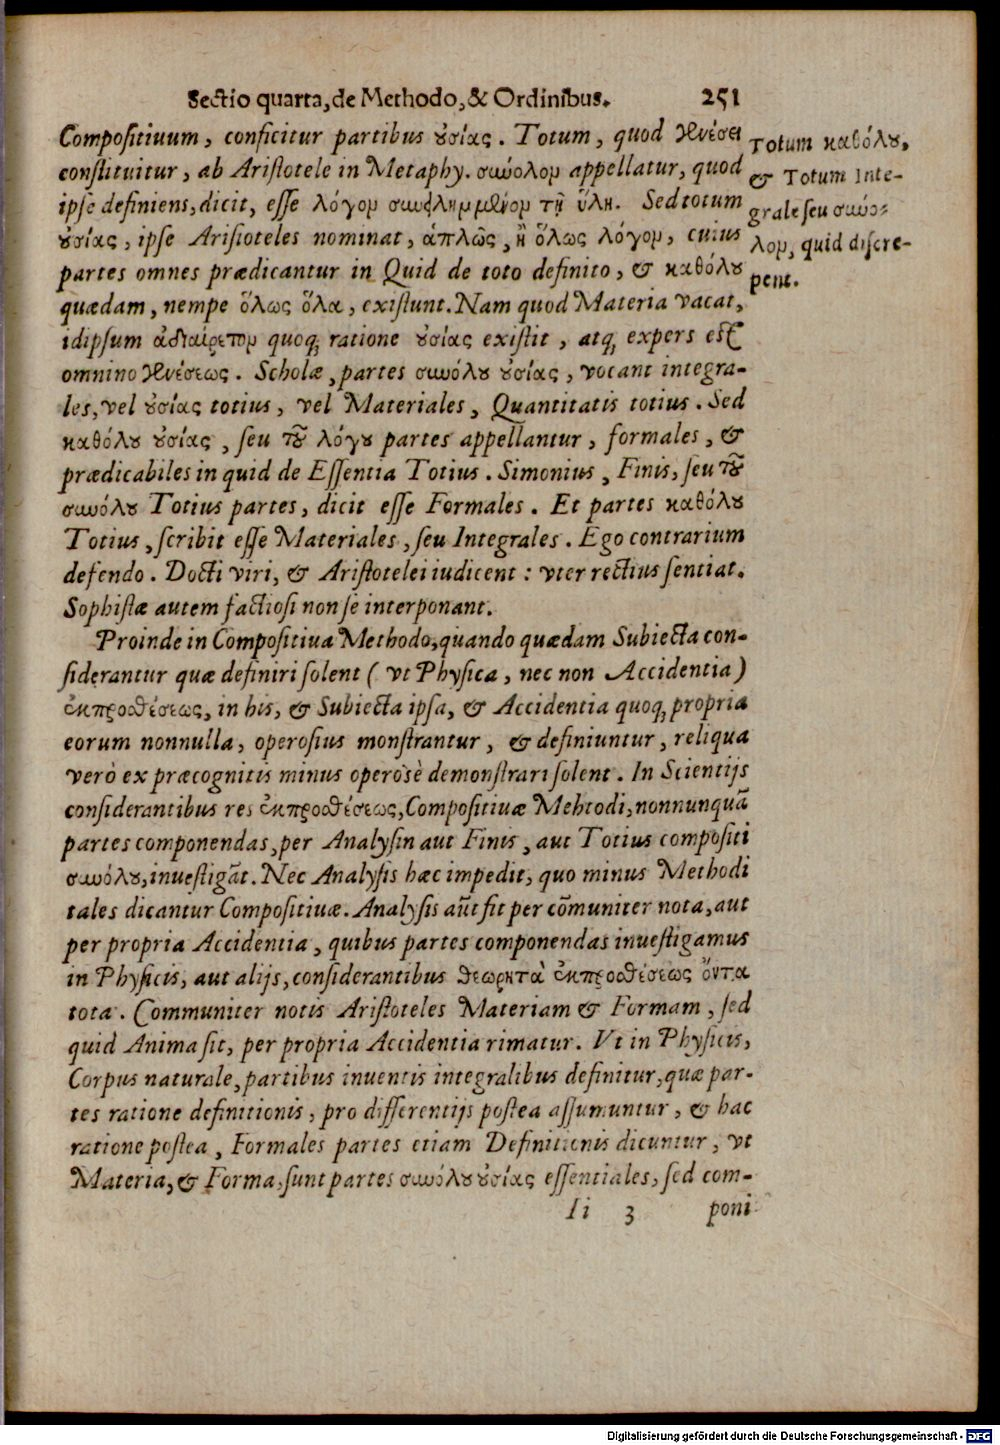 Sectio quarta, de Methodo, & Ordinibus. 251
Compositiuum, conficitur partibus ουσίας. Totum, quod γενέσει
constituitur, ab Aristotele in Metaphy. σωόλου appellatur, quod
ipse definiens, dicit, esse λόγον συνειλημμένον τῇ ὕλῃ. Sed totum
ουσίας, ipse Aristoteles nominat, ἁπλῶς, ἢ ὅλως λόγον, cuius
partes omnes prædicantur in Quid de toto definito, & καθόλου
quædam, nempe ὅλως ὅλα, existunt. Nam quod Materia vacat,
idipsum ἀδιαίρετον quoq; ratione ουσίας existit, atq; expers est
omnino γενέσεως. Scholæ, partes σωόλου ουσίας, vocant integra-
les, vel ουσίας totius, vel Materiales, Quantitatis totius. Sed
καθόλου ουσίας, seu τοῦ λόγου partes appellantur, formales, &
prædicabiles in quid de Essentia Totius. Simonius, Finis, seu τοῦ
σωόλου Totius partes, dicit esse Formales. Et partes καθόλου
Totius, scribit esse Materiales, seu Integrales. Ego contrarium
defendo. Docti viri, & Aristotelei iudicent: vter rectius sentiat.
Sophistæ autem factiosi non se interponant.
Proinde in Compositiua Methodo, quando quædam Subiecta con-
siderantur quæ definiri solent (vt Physica, nec non Accidentia)
ἐκπροσθέσεως, in his, & Subiecta ipsa, & Accidentia quoq; propria
eorum nonnulla, operosius monstrantur, & definiuntur, reliqua
verò ex præcognitis minus operosè demonstrari solent. In Scientijs
considerantibus res ἐκπροσθέσεως, Compositiuæ Mehtodi, nonnunquā
partes componendas, per Analysin aut Finis, aut Totius compositi
σωόλου, inuestigāt. Nec Analysis hæc impedit, quo minus Methodi
tales dicantur Compositiuæ. Analysis aūt fit per cōmuniter nota, aut
per propria Accidentia, quibus partes componendas inuestigamus
in Physicis, aut alijs, considerantibus θεωρητὰ ἐκπροσθέσεως ὄντα
tota. Communiter notis Aristoteles Materiam & Formam, sed
quid Anima sit, per propria Accidentia rimatur. Vt in Physicis,
Corpus naturale, partibus inuentis integralibus definitur, quæ par-
tes ratione definitionis, pro differentijs postea assumuntur, & hac
ratione postea, Formales partes etiam Definitionis dicuntur, vt
Materia, & Forma, sunt partes σωόλου ουσίας essentiales, sed com-
Ii 3 poni
Totum καθόλου,
& Totum Inte-
grale seu σωό-
λον, quid discre-
pent.
Digitalisierung gefördert durch die Deutsche Forschungsgemeinschaft - DFG